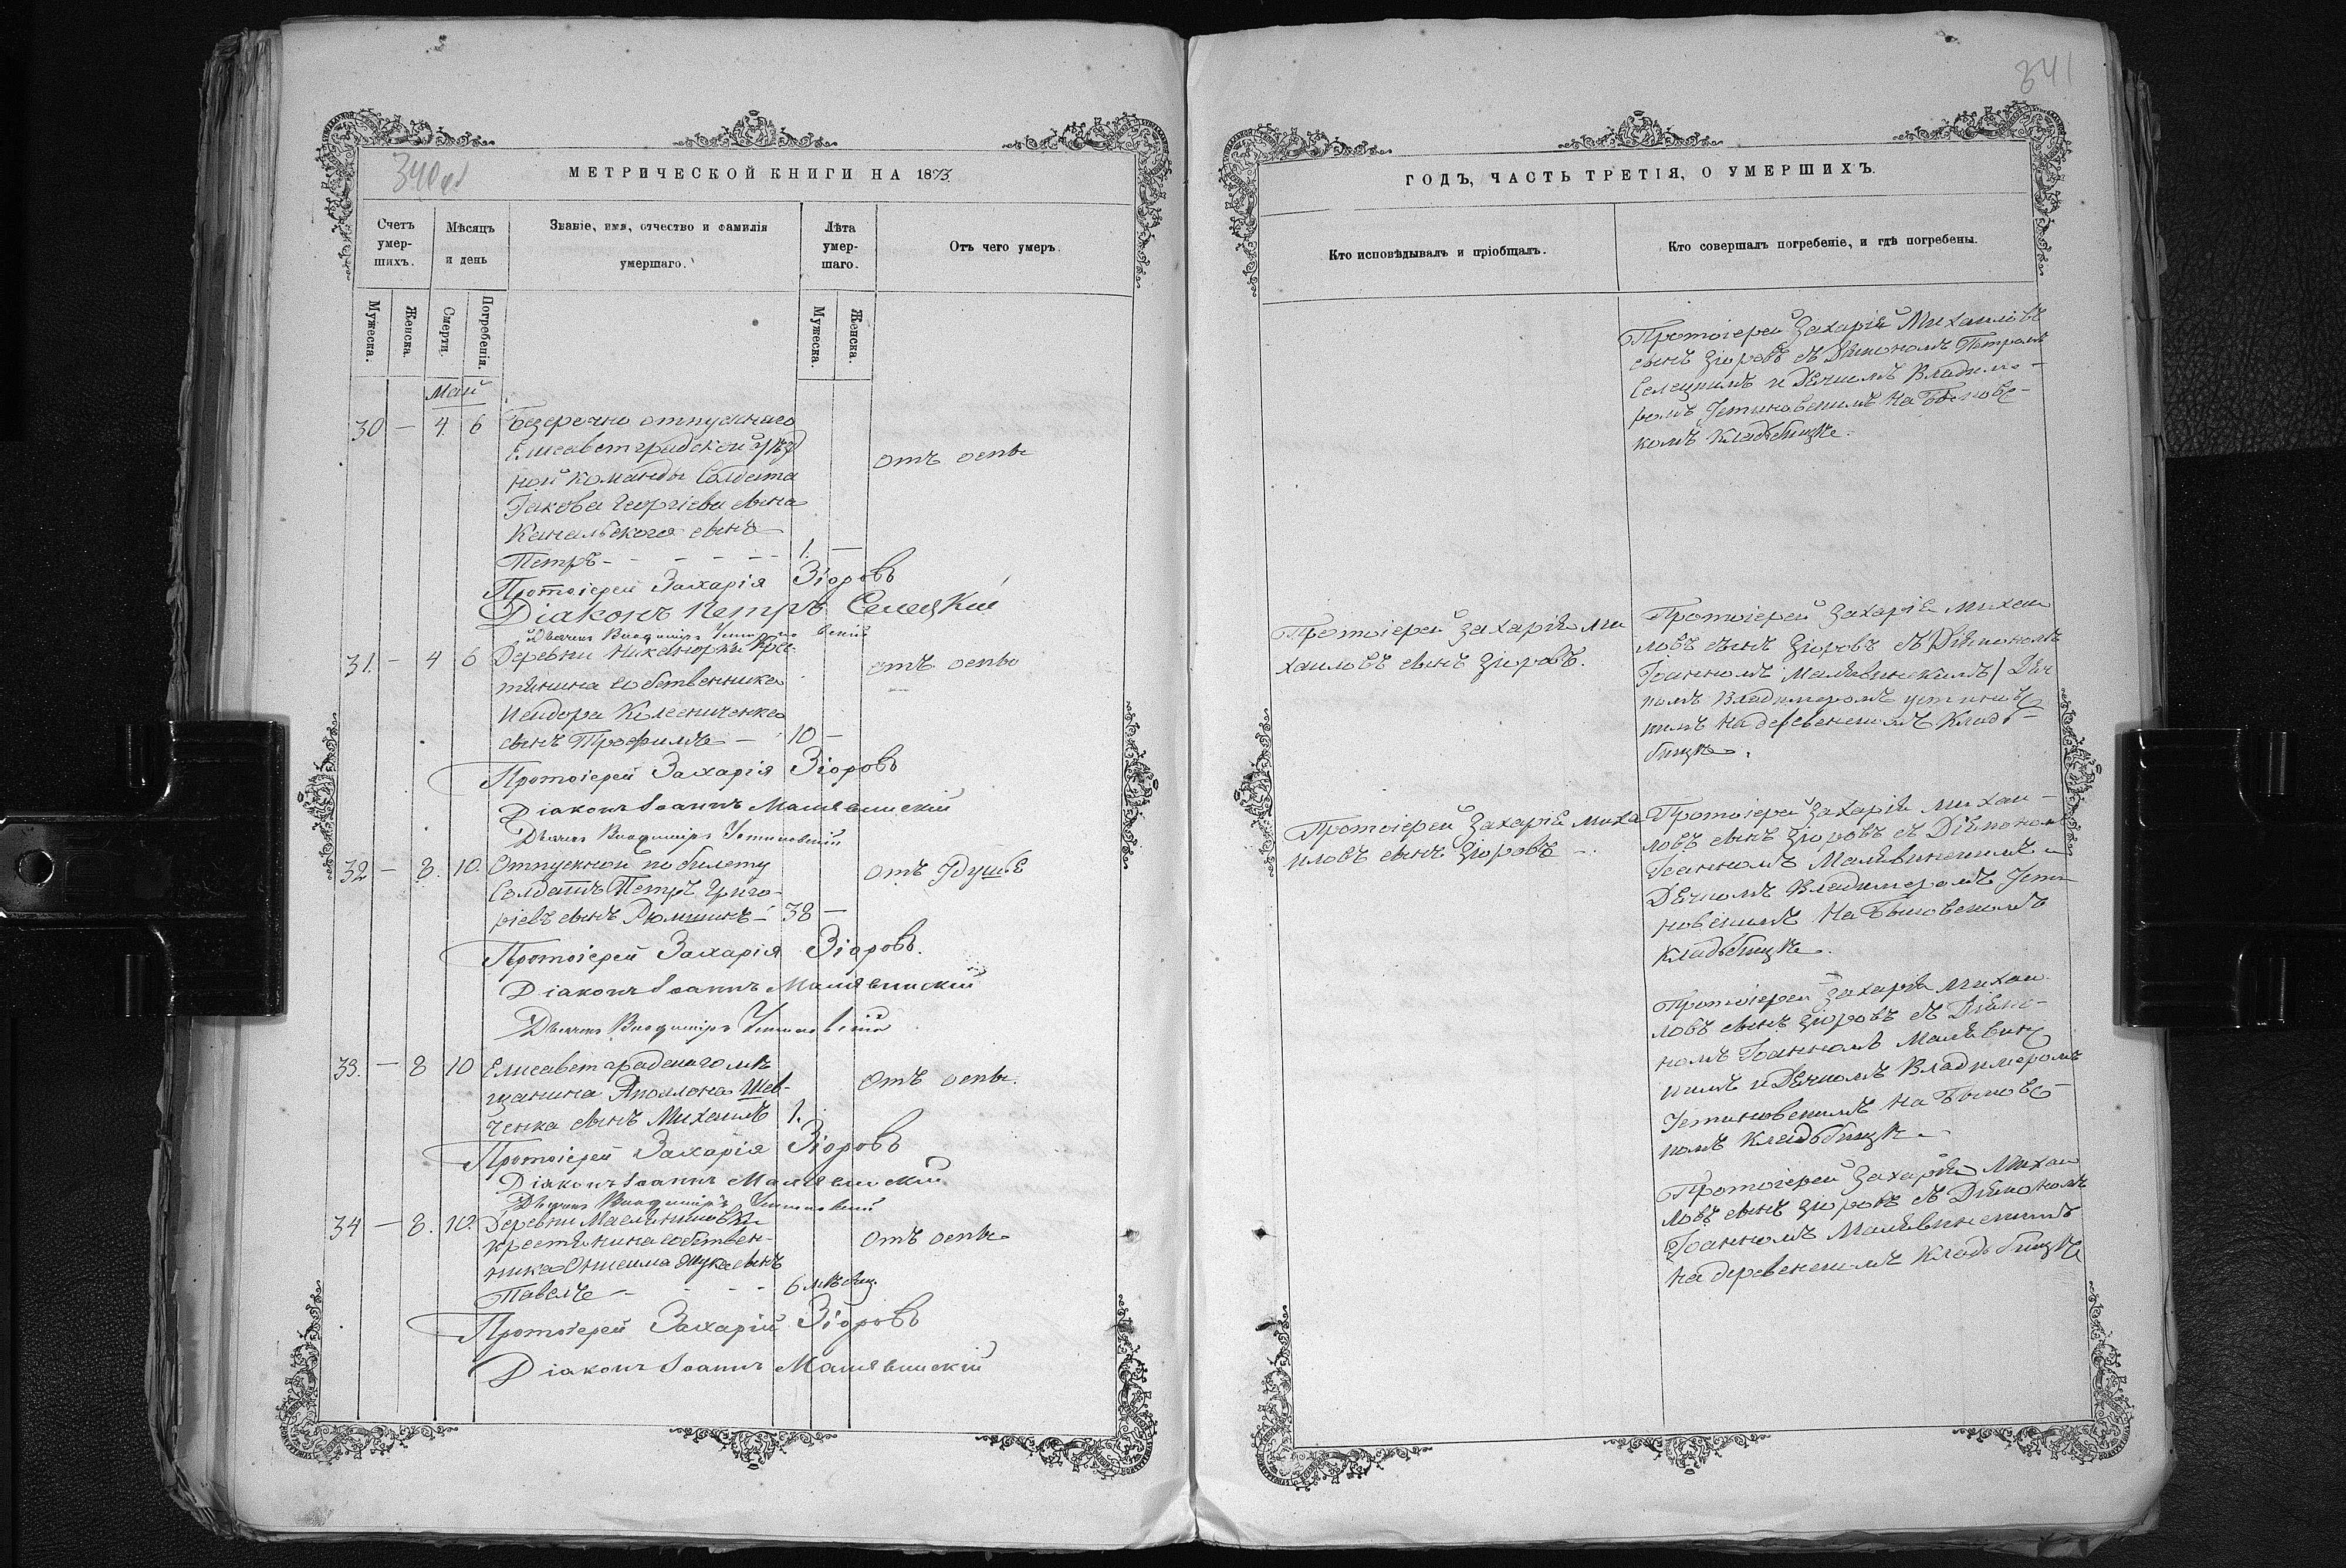 340 об
МЕТРИЧЕСКОЙ КНИГИ НА 1873
Счетъ умер-шихъ.
Мѣсяцъ и день
Званіе, имя, отчество и фамилія умершаго.
Лѣта умер-шаго.
Отъ чего умеръ.
Мужеска.
Женска.
Смерти.
Погребенія.
Мужеска.
Женска.
Май
30 — 4 6 Безсрочно отпускнаго
Елисаветградской уѣзд
ной команды Солдата
отъ оспы
Іакова Георгіева сына
сынъ
Петръ - - - - - 1. —
Протоіерей Захарія Зіоровъ
Діаконъ Петръ Селецкій
Дьячекъ Владиміръ Устиновскій
31. — 4 6 Деревни Никанорки крес
отъ оспы
тянина собственника
Исидора Колесниченка
сынъ Трофимъ — 10 —
Протоіерей Захарія Зіоровъ
Діаконъ Іоаннъ Малявинскій
Дьячекъ Владиміръ Устиновскій
32 — 8. 10. Отпускной по билету
отъ Удушья
Солдатъ Петръ Григо-
ріевъ сынъ Рюминъ — 38 —
Протоіерей Захарія Зіоровъ.
Діаконъ Іоаннъ Малявинскій
Дьячекъ Владиміръ Устиновскій
33. — 8 10 Елисаветградскаго мѣ
щанина Аполлона Шев-
отъ оспы.
ченка сынъ Михаилъ 1.
Протоіерей Захарія Зіоровъ
Діаконъ Іоаннъ Малявинскій
Дьячекъ Владиміръ Устиновскій
34 — 8. 10. Деревни
крестянина собствен-
отъ оспы
ника Онисима Жука сынъ
Павелъ - - - - 6 мѣсяц.
Протоіерей Захарій Зіоровъ
Діаконъ Іоаннъ Малявинскій
341
ГОДЪ, ЧАСТЬ ТРЕТІЯ, О УМЕРШИХЪ.
Кто исповѣдывалъ и пріобщалъ.
Кто совершалъ погребеніе, и гдѣ погребены.
Протоіерей Захарій Михаиловъ
сынъ Зіоровъ съ Діякономъ Петромъ
Селецкимъ и Дячкомъ Владими-
ромъ Устиновскимъ на Быковс-
комъ Кладьбищѣ.
Протоіерей Захарій Ми
хаиловъ сынъ Зіоровъ.
Протоіерей Захарій Михаи
ловъ сынъ Зіоровъ съ Діякономъ
Іоанномъ Малявинскимъ Дяч
комъ Владимеромъ Устиновс
кимъ на деревенскомъ Кладь-
бищѣ.
Протоіерей Захарій Миха
иловъ сынъ Зіоровъ —
Протоіерей Захарій Михаи-
ловъ сынъ Зіоровъ съ Діякономъ
Іоанномъ Малявинскимъ и
Дячкомъ Владимеромъ Усти-
новскимъ на Быковскомъ
Кладьбищѣ.
Протоіерей Захарій Михаи
ловъ сынъ Зіоровъ съ Діяко-
номъ Іоанномъ Малявинс
кимъ и Дячкомъ Владимеромъ
Устиновскимъ на Быковс-
комъ Кладьбищѣ.
Протоіерей Захарій Михаи
ловъ сынъ Зіоровъ съ Діякономъ
Іоанномъ Малявинскимъ
на деревенскимъ Кладьбищѣ